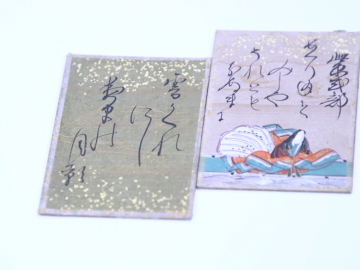 紫式部
めくりあひて
みしや
それとも
わかぬまに
雲かくれ
にし
夜半の
月影